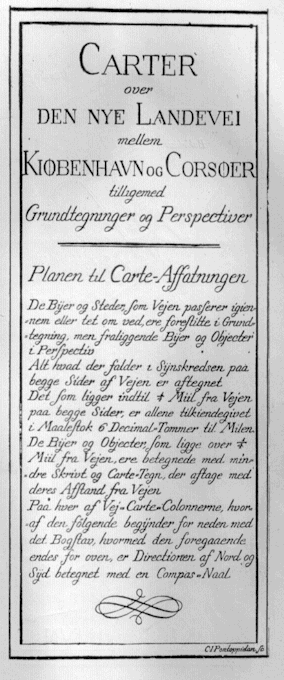 CARTER
over
DEN NYE LANDEVEI
mellem
KIØBENHAVN OG CORSØER
tilligemed
Grundtegninger og Perspectiver
Planen til Carte-Affatningen
De Bÿer og Steder, som Vejen passerer igien-
nem eller tet om ved, ere forestilte i Grund-
tegning, men fraliggende Bÿer og Objecter
i Perspectiv
Alt hvad der falder i Synskredsen paa
begge Sider af Vejen er aftegnet
Det som ligger indtil ¼ Miil fra Vejen
paa begge Sider, er allene tilkiendegivet
i Maalestok 6 Decimal-Tommer til Milen
De Bÿer og Objecter, som ligge over ¼
Miil fra Vejen, ere betegnede med min-
dre Skrivt og Carte-Tegn, der aftage med
deres Afstand fra Vejen
Paa hver af Vej-Carte-Colonnerne, hvor-
af den følgende begÿnder for neden med
det Bogstav, hvormed den foregaaende
endes for oven, er Directionen af Nord og
Sÿd betegnet med en Compas-Naal
C.I. Pontoppidan, sc.